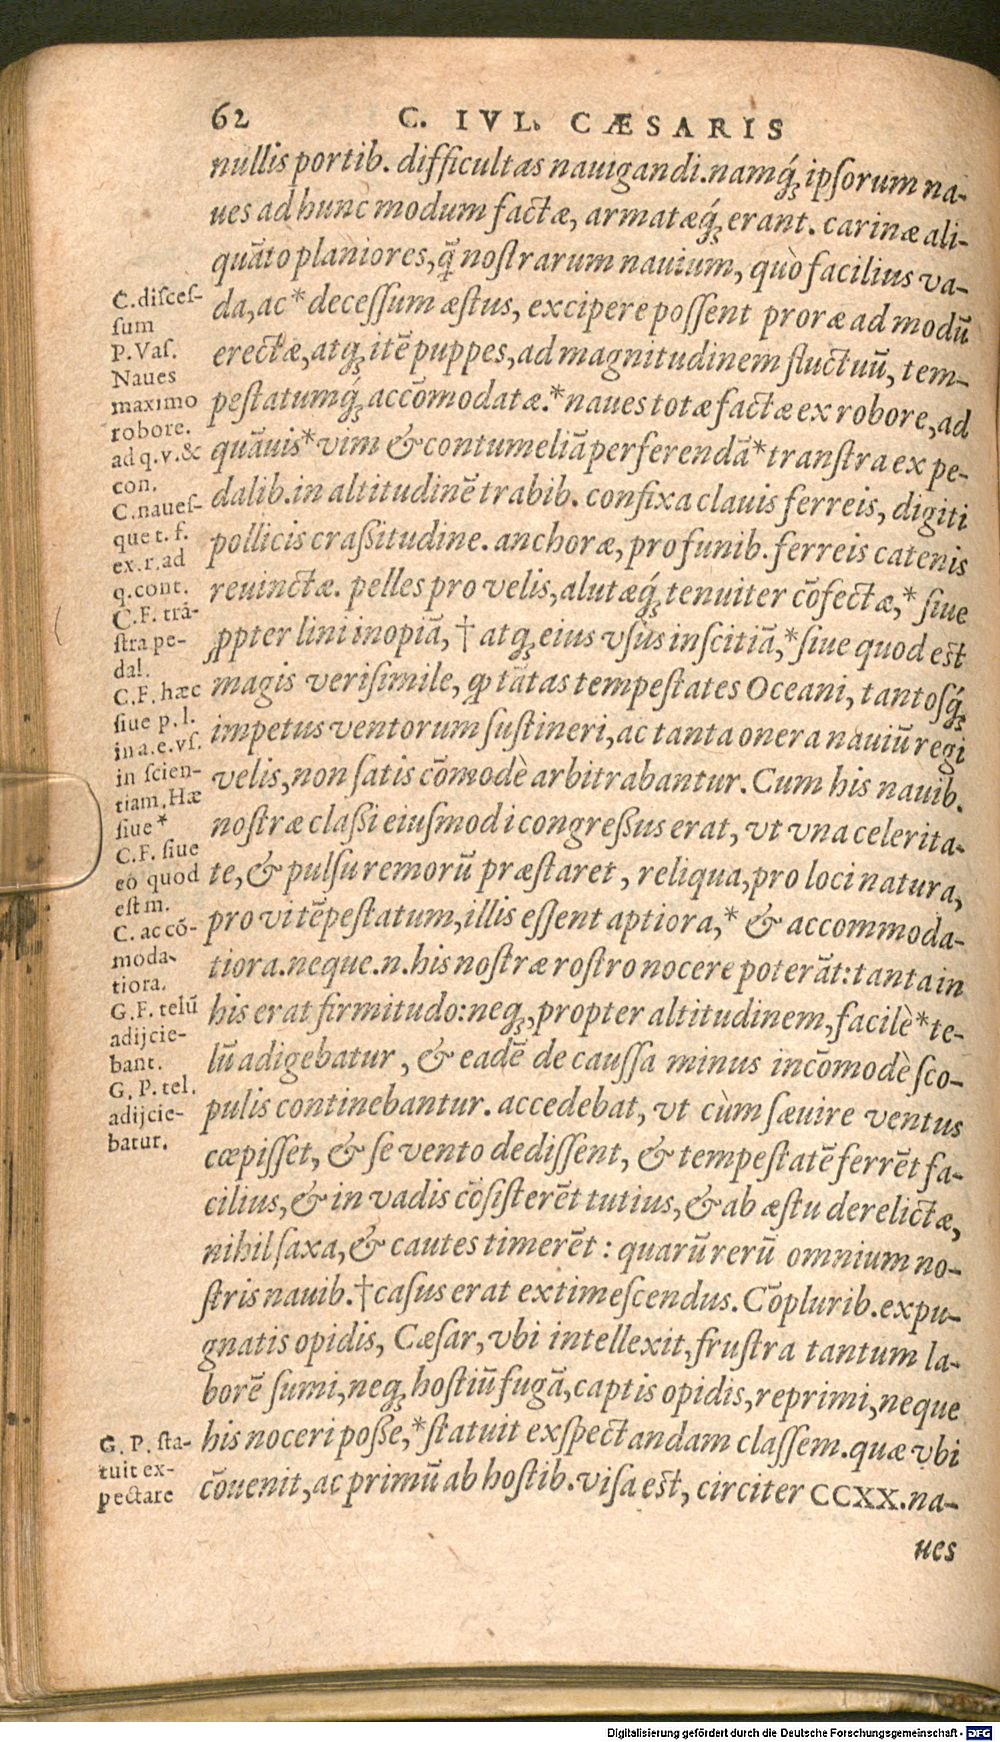 62 C. IVL. CÆSARIS
nullis portib. difficultas nauigandi. namq́ꝫ ipſorum na-
ues ad hunc modum factæ, armatæq́ꝫ erant. carinæ ali-
quãto planiores, q̃ noſtrarum nauium, quò facilius va-
da, ac * deceſſum æſtus, excipere poſſent proræ ad modũ
erectæ, atqꝫ itẽ puppes, ad magnitudinem fluctuũ, tem-
peſtatumq́ꝫ accõmodatæ. * naues totæ factæ ex robore, ad
quãuis * vim & contumeliã perferendã * tranſtra ex pe-
dalib. in altitudinẽ trabib. confixa clauis ferreis, digiti
pollicis craſſitudine. anchoræ, pro funib. ferreis catenis
reuinctæ. pelles pro velis, alutæq́ꝫ tenuiter cõfectæ, * ſiue
ꝓpter lini inopiã, † atqꝫ eius vſus inſcitiã, * ſiue quod eſt
magis veriſimile, ꝙ tãtas tempeſtates Oceani, tantoſq́ꝫ
impetus ventorum ſuſtineri, ac tanta onera nauiũ regi
velis, non ſatis cõmodè arbitrabantur. Cum his nauib.
noſtræ claſſi eiuſmodi congreſſus erat, vt vna celerita-
te, & pulſu remorũ præſtaret, reliqua, pro loci natura,
pro vi tẽpeſtatum, illis eſſent aptiora, * & accommoda-
tiora. neque. n. his noſtræ roſtro nocere poterãt: tanta in
his erat firmitudo: neqꝫ, propter altitudinem, facilè * te-
lũ adigebatur, & eadẽ de cauſſa minus incõmodè ſco-
pulis continebantur. accedebat, vt cùm ſæuire ventus
cœpiſſet, & ſe vento dediſſent, & tempeſtatẽ ferrẽt fa-
cilius, & in vadis cõſiſterẽt tutius, & ab æſtu derelictæ,
nihil ſaxa, & cautes timerẽt: quarũ rerũ omnium no-
ſtris nauib. † caſus erat extimeſcendus. Cõplurib. expu-
gnatis opidis, Cæſar, vbi intellexit, fruſtra tantum la-
borẽ ſumi, neqꝫ hoſtiũ fugã, captis opidis, reprimi, neque
his noceri poſſe, * ſtatuit exſpectandam claſſem. quæ vbi
cõuenit, ac primũ ab hoſtib. viſa eſt, circiter CCXX. na-
ues
C. diſceſ-
ſum
P. Vaſ.
Naues
maximo
robore.
ad q. v. &
con.
C. naueſ-
que t. f.
ex. r. ad
q. cont.
C. F. trã-
ſtra pe-
dal.
C. F. hæc
ſiue p. l.
in a. e. vſ.
in ſcien-
tiam. Hæ
ſiue *
C. F. ſiue
eò quod
eſt m.
C. ac cõ-
moda-
tiora.
G. F. telũ
adijcie-
bant.
G. P. tel.
adijcie-
batur.
G. P. ſta-
tuit ex-
pectare
Digitalisierung gefördert durch die Deutsche Forschungsgemeinschaft - DFG